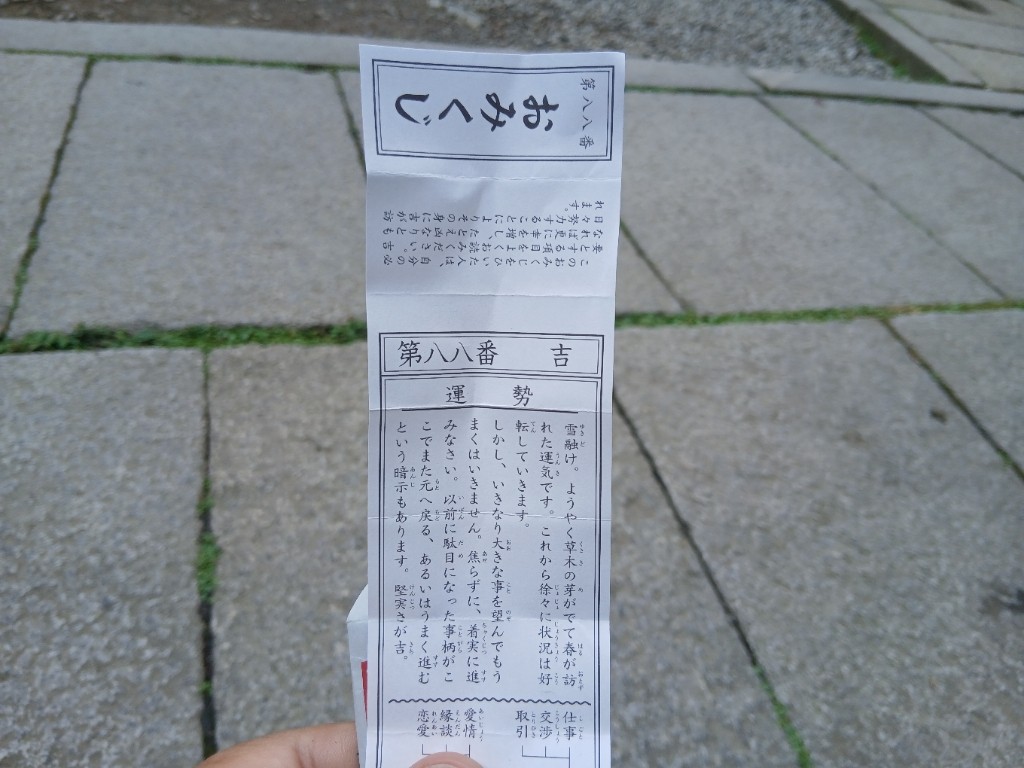 第八八番
おみくじ
このおみくじをひいた人は、自分の必
要とする項目をよくお読みください。吉と
なれば更に幸を増し、たとえ凶なりとも
日々努力することによりその身に吉が訪
れます。
第八八番 吉
運勢
雪融け。ようやく草木の芽がでて春が訪
れた運気です。これから徐々に状況は好
転していきます。
しかし、いきなり大きな事を望んでもう
まくはいきません。焦らずに、着実に進
みなさい。以前に駄目になった事柄がこ
こでまた元へ戻る、あるいはうまく進む
という暗示もあります。堅実さが吉。
仕事
交渉
取引
愛情
縁談
恋愛